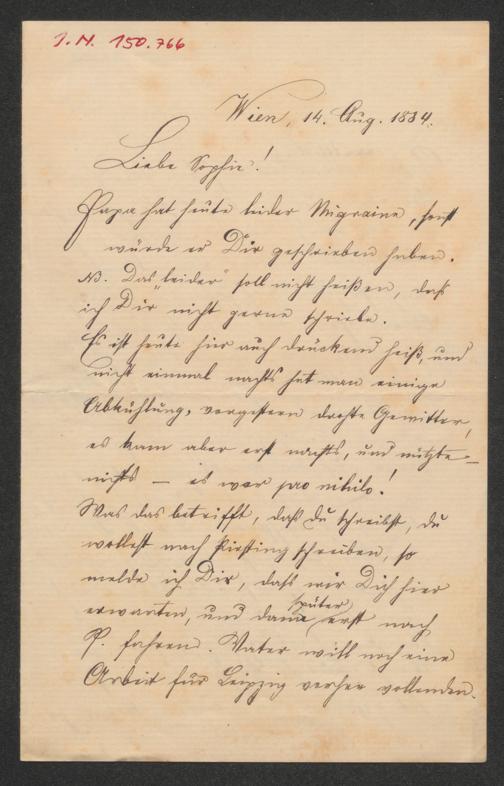 I.N. 150.766
Wien, 14. Aug. 1884.
Liebe Sophie!
Papa hat heute leider Migraine, sonst
würde er Dir geschrieben haben.
NB. Das „leider" soll nicht heißen, daß
ich Dir nicht gerne schriebe.
Es ist heute hier auch drückend heiß, und
nicht einmal nachts hat man einige
Abkühlung, vorgestern drohte Gewitter,
es kam aber erst nachts, und nützte
nichts — es war pro nihilo!
Was das betrifft, daß Du schreibst, du
wollest nach Piesting schreiben, so
melde ich Dir, daß wir Dich hier
erwarten, und dann später erst nach
P. fahren. Vater will noch eine
Arbeit für Leipzig vorher vollenden.